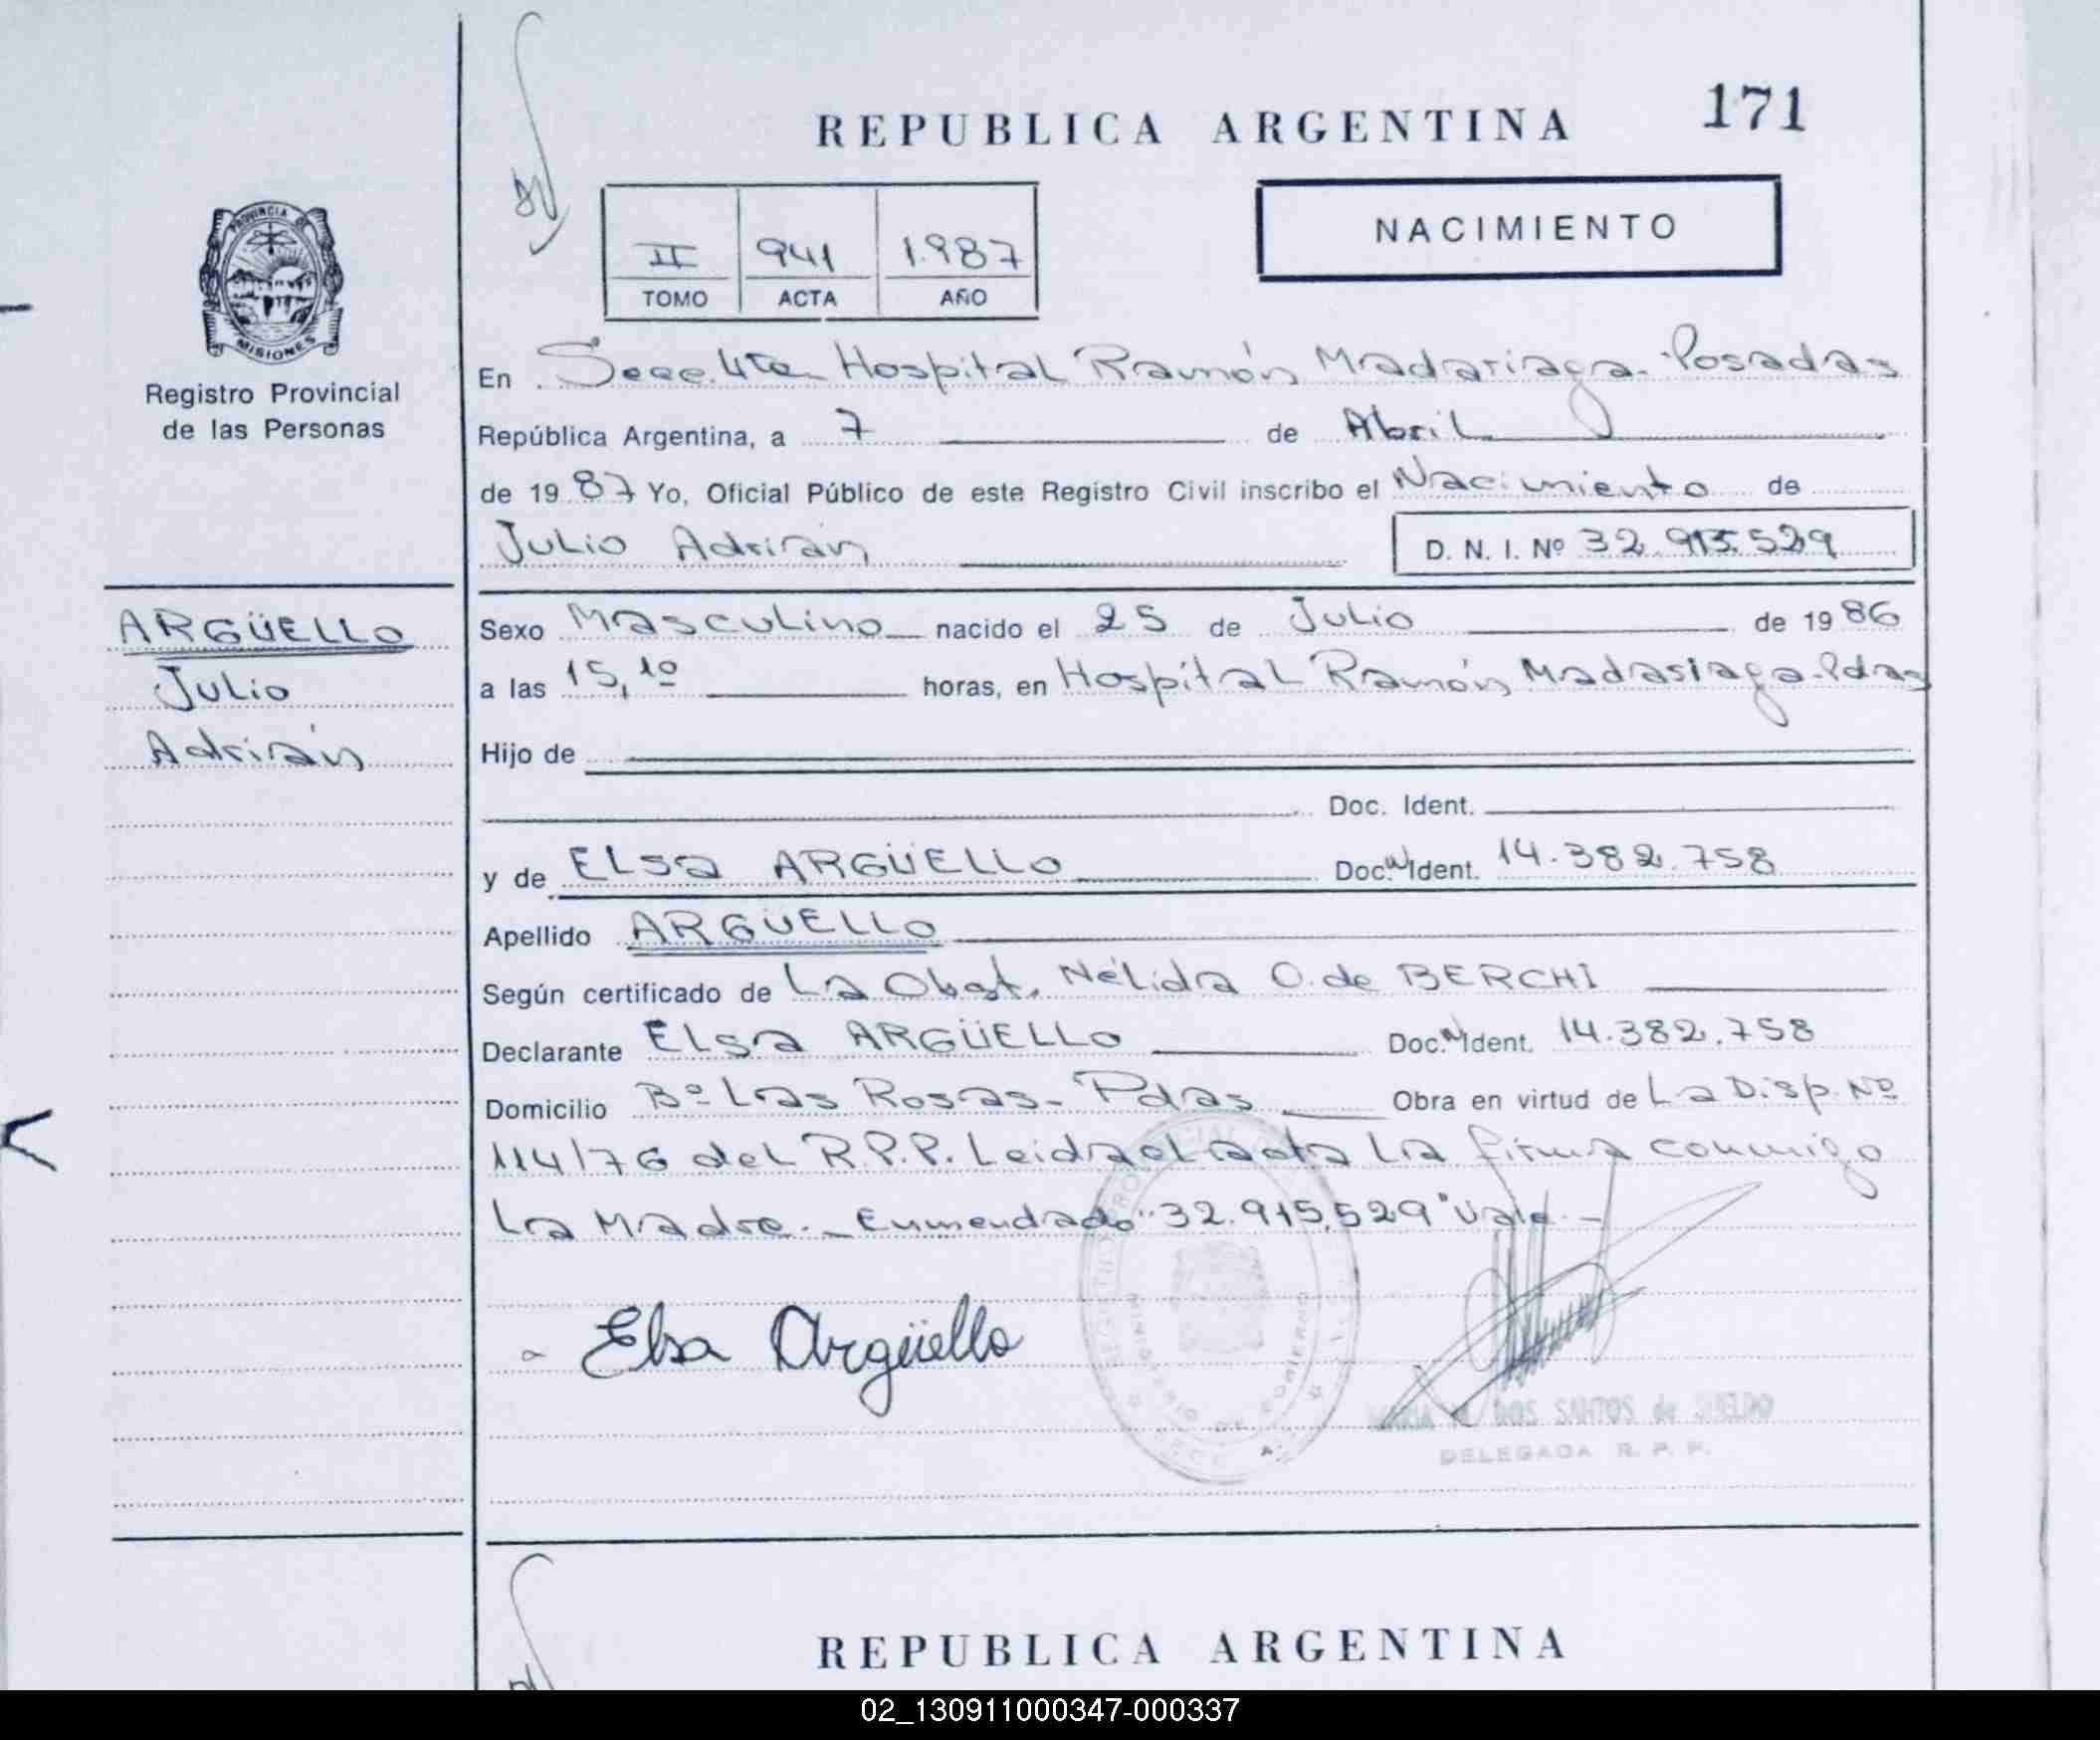 REPUBLICA ARGENTINA 171
NACIMIENTO
II 941 1.987
TOMO ACTA AÑO
PROVINCIA DE
MISIONES
Registro Provincial
de las Personas
En Secc. 4ta Hospital Ramón Madariaga - Posadas
República Argentina, a 7 de Abril
de 1987 Yo, Oficial Público de este Registro Civil inscribo el Nacimiento de
Julio Adrian D. N. I. Nº 32.915.529
ARGÜELLO
Julio
Adrián
Sexo Masculino nacido el 25 de Julio de 1986
a las 15,10 horas, en Hospital Ramón Madariaga - Pdas
Hijo de
Doc. Ident.
y de ELSA ARGÜELLO Doc. N Ident. 14.382.758
Apellido ARGÜELLO
Según certificado de La Obst. Nélida O. de BERCHI
Declarante ELSA ARGÜELLO Doc. N Ident. 14.382.758
Domicilio Bº Las Rosas - Pdas Obra en virtud de La Disp. Nº
114/76 del R.P.P. Leida el acta La firma conmigo
La Madre. - Enmendado "32.915.529" Vale. -
Elsa Argüello
DOS SANTOS de
DELEGADA R. P. P.
REPUBLICA ARGENTINA
02_130911000347-000337